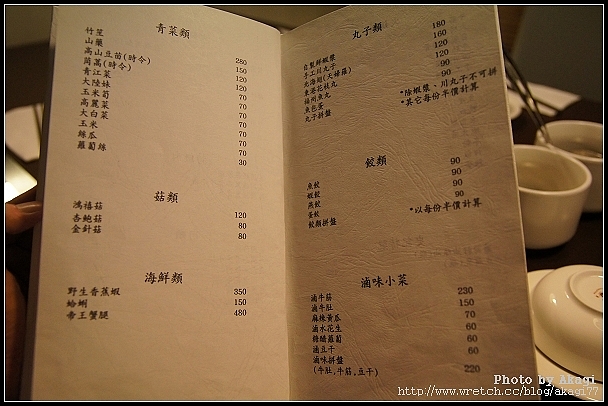 青菜類
竹笙
山藥
高山豆苗(時令)
茼蒿(時令) 280
青江菜 150
大陸妹 120
玉米筍 120
高麗菜 70
大白菜 70
玉米 70
絲瓜 70
蘿蔔絲 70
70
30
菇類
鴻禧菇
杏鮑菇 120
金針菇 80
80
海鮮類
野生香蕉蝦 350
蛤蜊 150
帝王蟹腿 480
丸子類
自製鮮蝦漿 180
手工川丸子 160
120
香港花枝丸 120
福州魚丸 90
魚包蛋 90
丸子拼盤
*除蝦漿、川丸子不可拼
*其它每份半價計算
餃類
魚餃 90
蝦餃 90
燕餃 90
蛋餃 90
餃類拼盤
*以每份半價計算
滷味小菜
滷牛筋 230
滷牛肚 150
麻辣黃瓜 70
滷水花生 60
糖醋蘿蔔 60
滷豆干 60
滷味拼盤
(牛肚,牛筋,豆干) 220
Photo by Akagi
http://www.wretch.cc/blog/akagi77